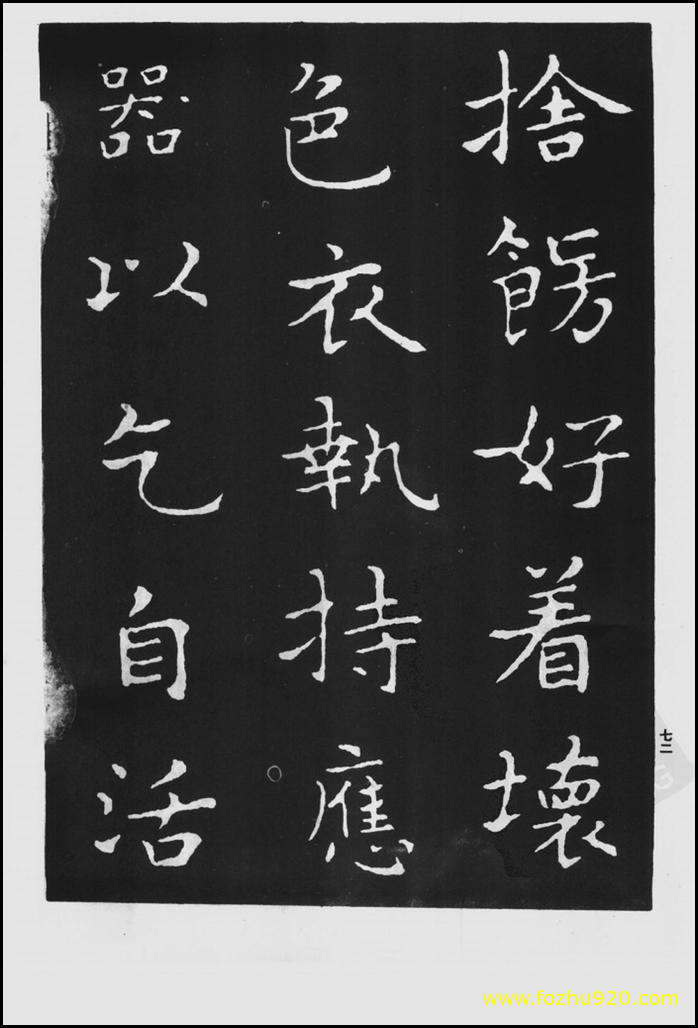 捨餝好着壞
色衣執持應
器以乞自活
七二
www.fozhu920.com